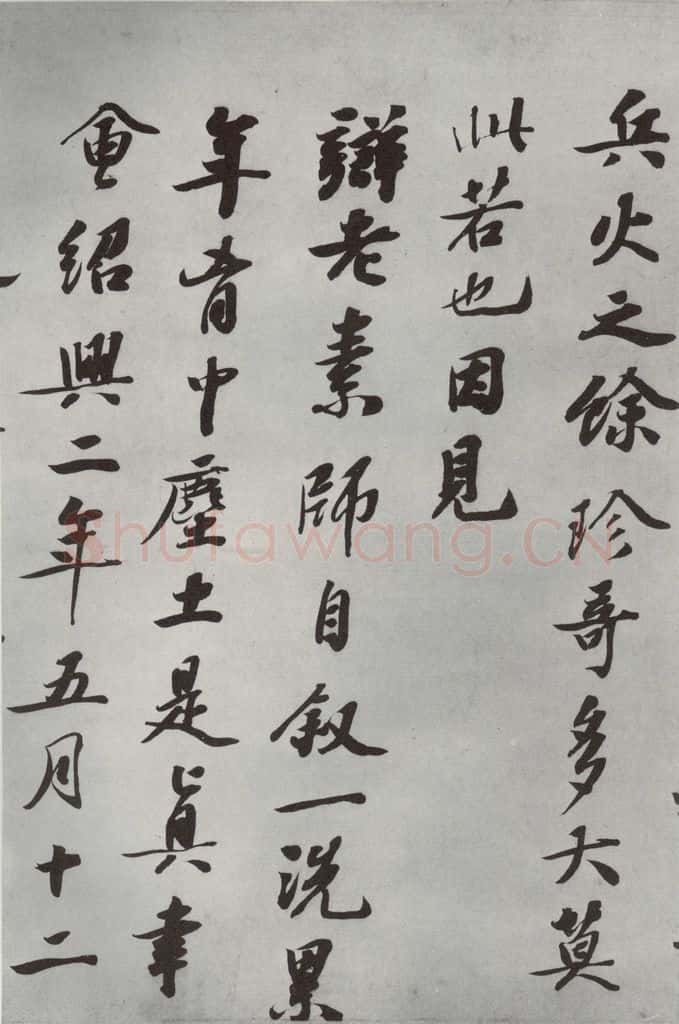 兵火之餘珍奇多莫
此若也因見
辯老素師自叙一洗累
年胷中塵土是真幸
會紹興二年五月十二
Shufawang.CN